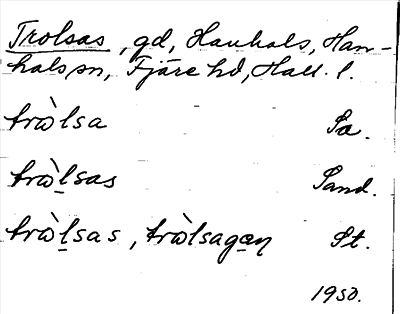 Trolsas, gd, Hanhals, Han-
hals sn, Fjäre hd, Hall. l.
trὼlsa Sa.
trὼl̲sas Sand.
trὼl̲sas, trὼlsagæn St.
1950.